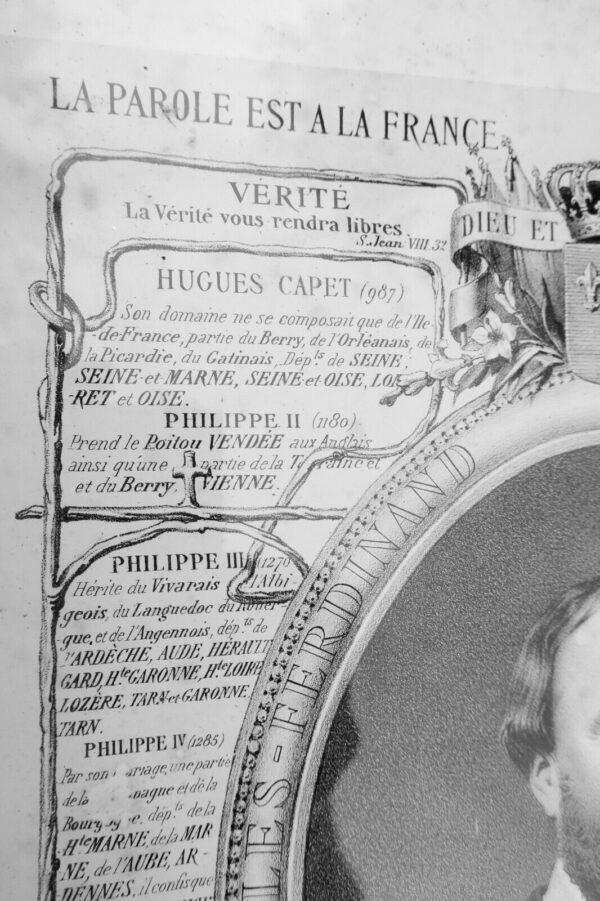 LA PAROLE EST A LA FRANCE
VÉRITÉ
La Vérité vous rendra libres.
S. Jean VIII. 32
DIEU ET
HUGUES CAPET (987)
Son domaine ne se composait que de l'Ile-
-de-France, partie du Berry, de l'Orléanais, de
la Picardie, du Gatinais, Dép.ts de SEINE,
SEINE-et-MARNE, SEINE-et OISE, LOI-
-RET et OISE.
PHILIPPE II (1180)
Prend le Poitou VENDÉE aux Anglais
ainsi qu'une partie de la et
et du Berry, VIENNE.
PHILIPPE III (1270
Hérite du Vivarais l'Albi-
geois, du Languedoc du
gue, et de l'Angennois, dép.ts de
l'ARDÈCHE, AUDE, HÉRAULT
GARD, Hte GARONNE, Hte LOIRE
LOZÈRE, TARN-et-GARONNE,
TARN.
PHILIPPE IV (1285)
Par son une partie
de la et de la
dép.ts de la
Hte MARNE, de la MAR
NE, de l'AUBE, AR-
DENNES, il confisque
LES-FERDINAND